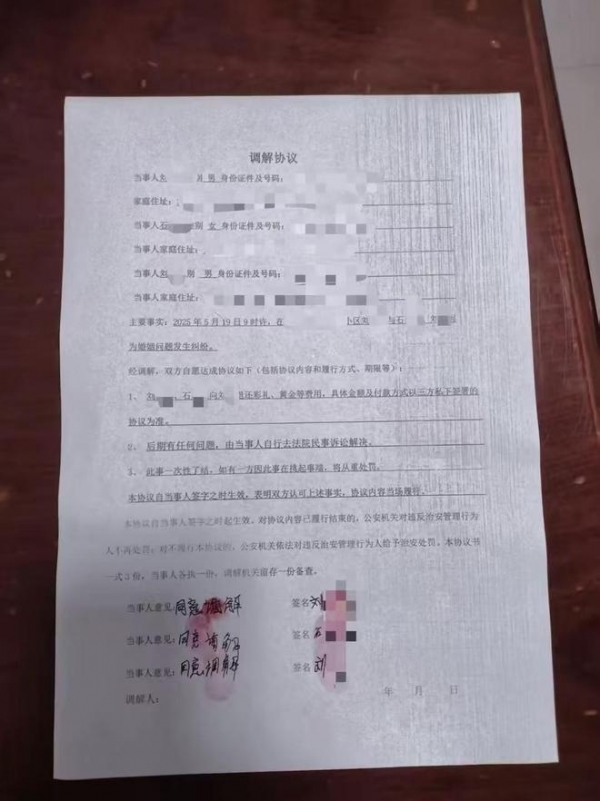 调解协议
当事人 月 男 身份证件及号码:
家庭住址:
当事人石 别 女 身份证件及号码:
当事人家庭住址:
当事人 别 男 身份证件及号码:
当事人家庭住址:
主要事实: 2025年5月19日9时许,在 与石
为婚姻问题发生纠纷。
经调解,双方自愿达成协议如下(包括协议内容和履行方式、期限等):
1、 刘 、石 向 还彩礼、黄金等费用,具体金额及付款方式以三方私下签署的
协议为准。
2、 后期有任何问题,由当事人自行去法院民事诉讼解决。
3、 此事一次性了结,如有一方因此事在挑起事端,将从重处罚。
本协议自当事人签字之时生效,表明双方认可上述事实,协议内容当场履行。
本协议自当事人签字之时起生效。对协议内容已履行结束的,公安机关对违反治安管理行为
人不再处罚;对不履行本协议的,公安机关依法对违反治安管理行为人给予治安处罚。本协议书
一式3份,当事人各执一份,调解机关留存一份备查。
当事人意见: 同意调解 签名 刘
当事人意见: 同意调解 签名 石
当事人意见: 同意调解 签名 刘
调解人: 年 月 日